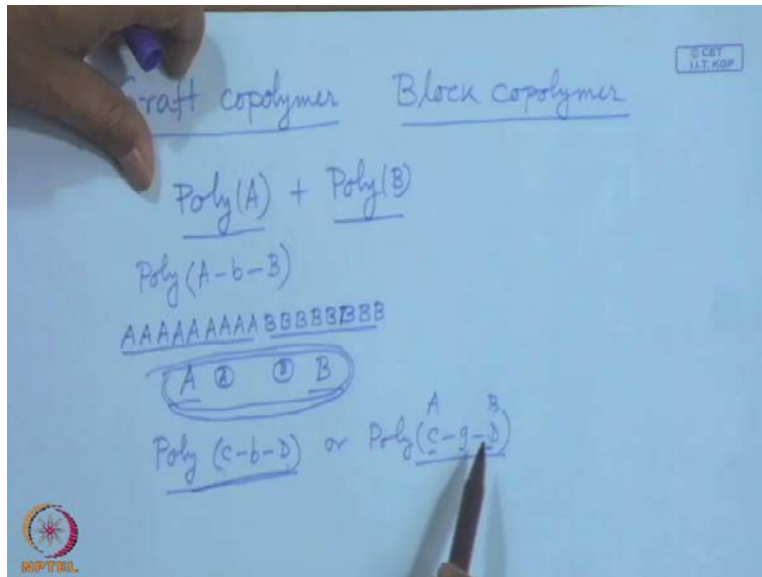 © CET
I.I.T. KGP
Graft copolymer Block copolymer
Poly(A) + Poly(B)
Poly(A-b-B)
AAAAAAAAA BBBBBBBB
A B
A B
Poly (C-b-D) or Poly(C-g-D)
NPTEL